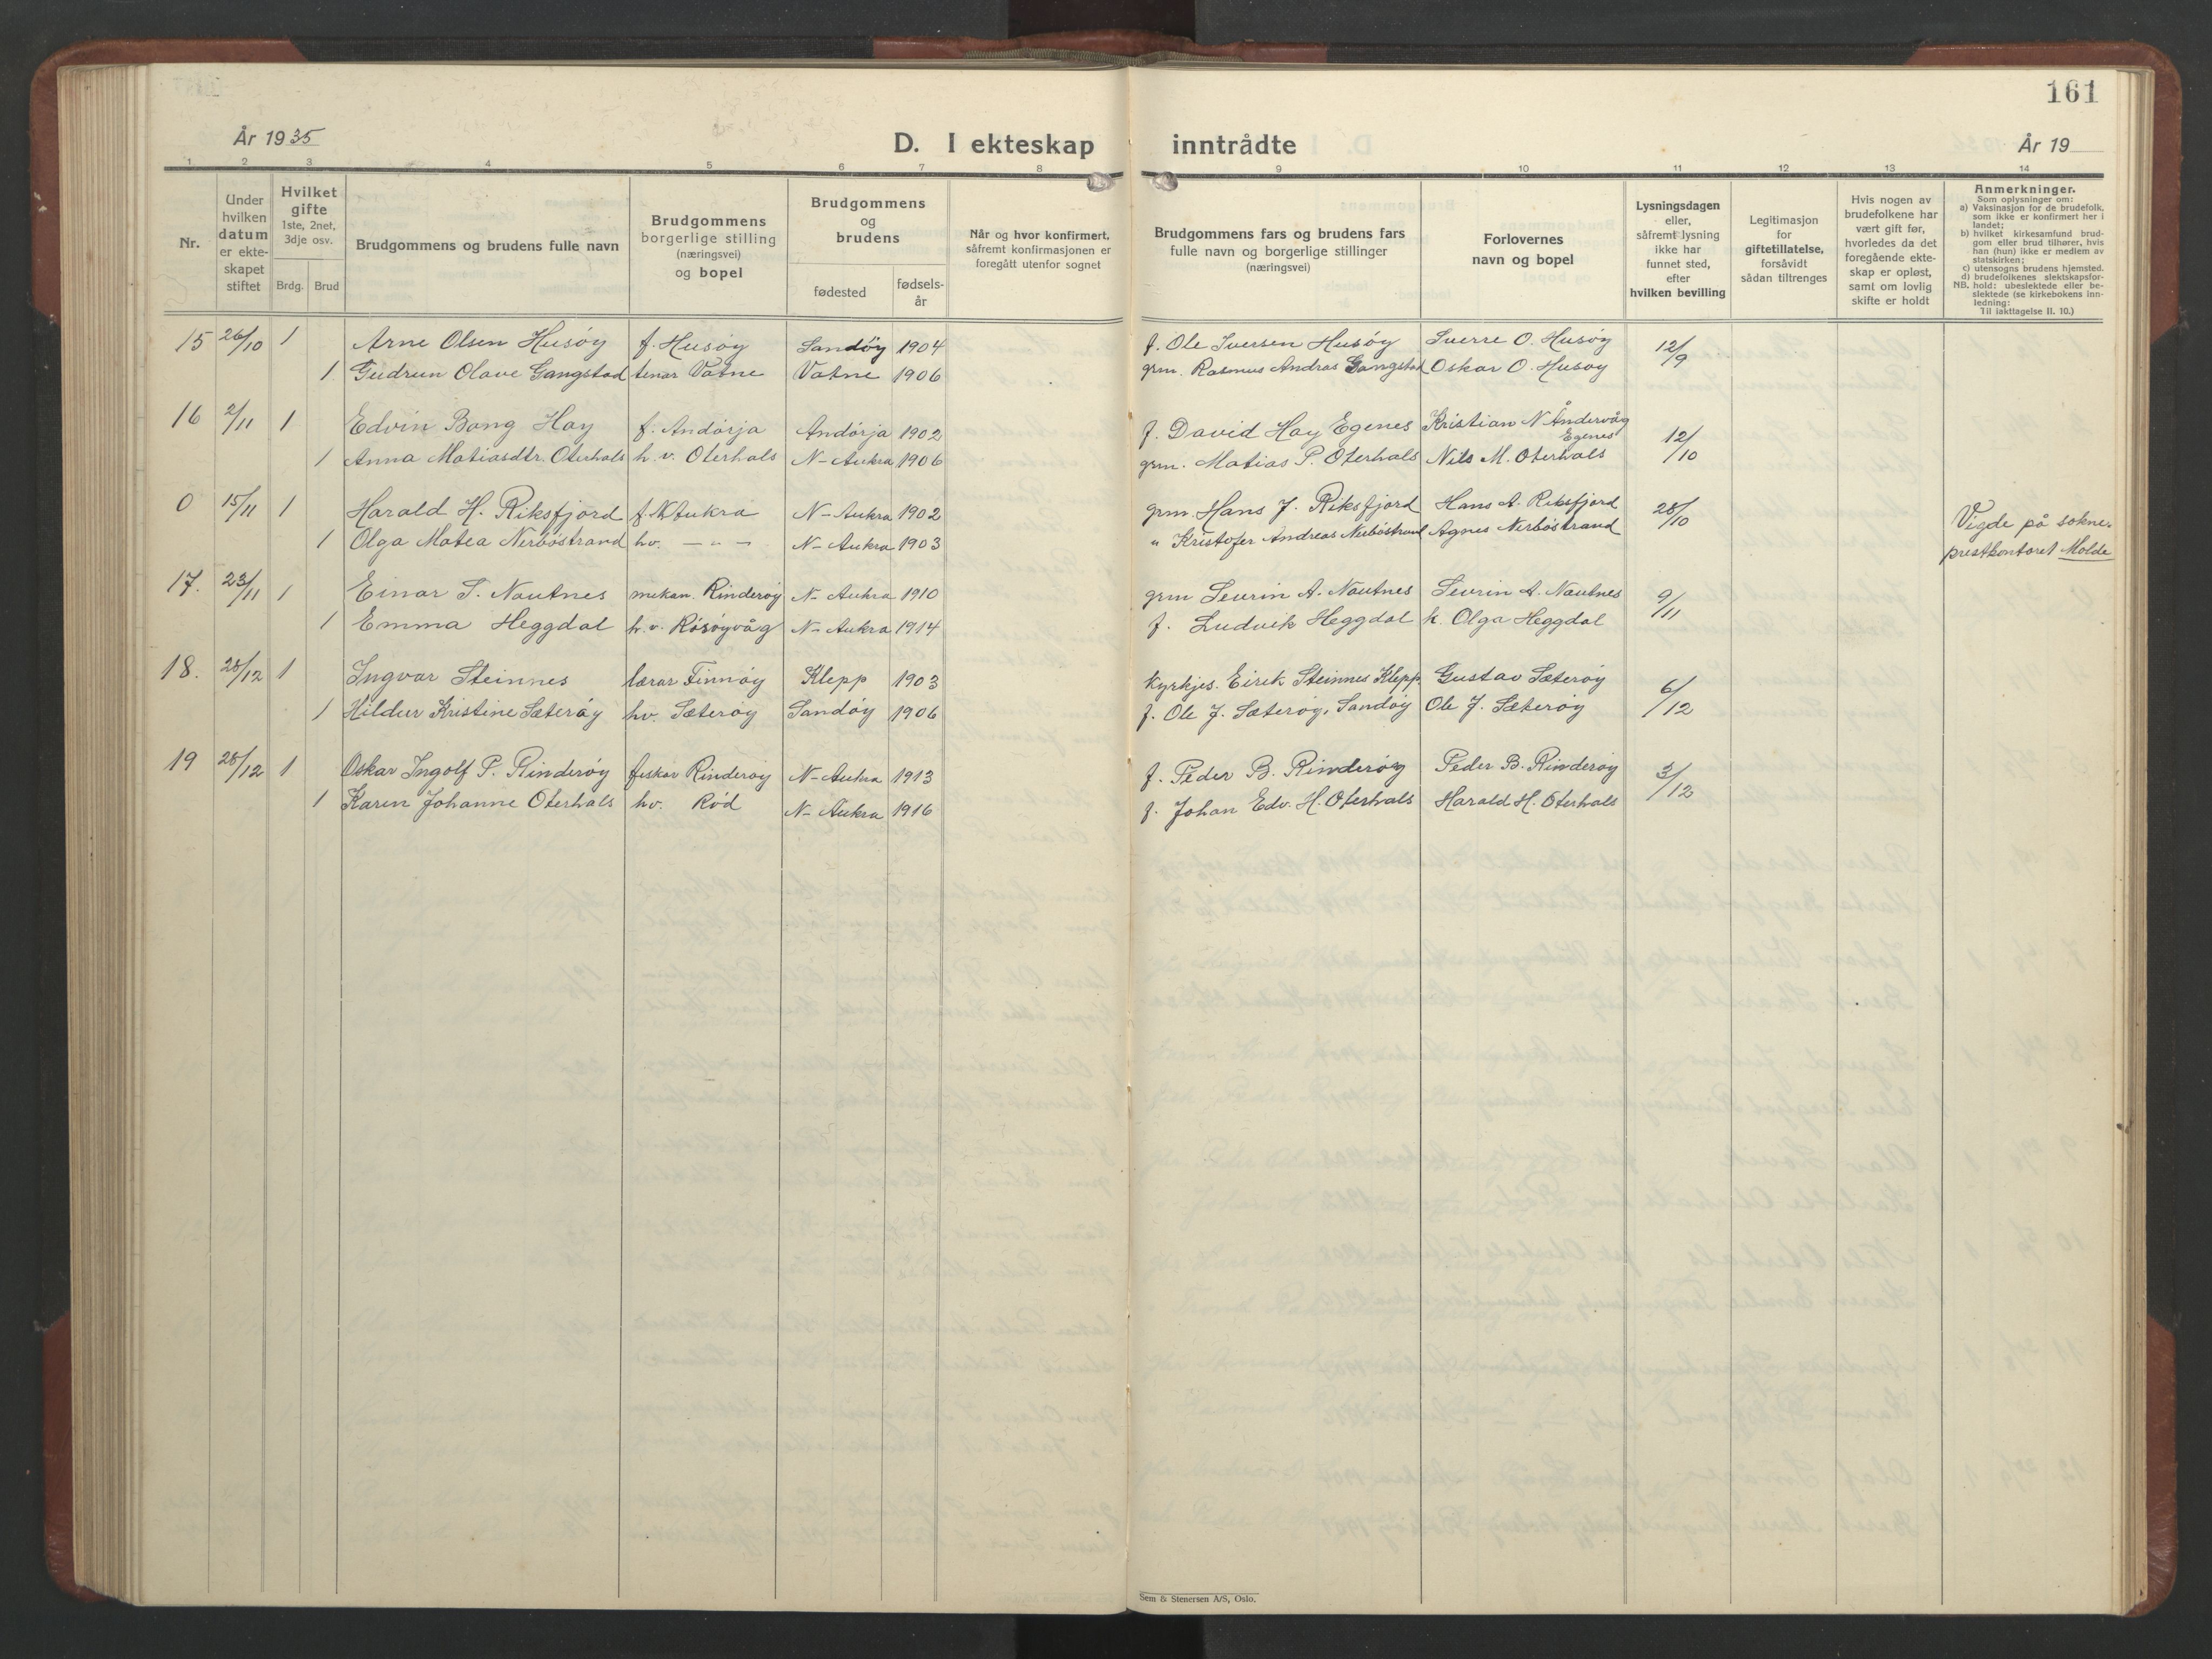 161
År 1935
D. I ekteskap inntrådte
År 19
1 2 3 4 5 6 7 8 9 10 11 12 13 14
Nr.
Under hvilken datum er ekte-skapet stiftet
Hvilket gifte 1ste, 2net, 3dje osv.
Brdg. Brud
Brudgommens og brudens fulle navn
Brudgommens borgerlige stilling (næringsvei) og bopel
Brudgommens og brudens
fødested
fødsels-år
Når og hvor konfirmert, såfremt konfirmasjonen er foregått utenfor sognet
Brudgommens fars og brudens fars fulle navn og borgerlige stillinger (næringsvei)
Forlovernes navn og bopel
Lysningsdagen eller, såfremt lysning ikke har funnet sted, efter hvilken bevilling
Legitimasjon for giftetillatelse, forsåvidt sådan tiltrenges
Hvis nogen av brudefolkene har vært gift før, hvorledes da det foregående ekte-skap er opløst, samt om lovlig skifte er holdt
Anmerkninger.
Som oplysninger om:
a) Vaksinasjon for de brudefolk, som ikke er konfirmert her i landet;
b) hvilket kirkesamfund brud-gom eller brud tilhører, hvis han (hun) ikke er medlem av statskirken;
c) utensogns brudens hjemsted.
d) brudefolkenes slektskapsfor-
NB. hold: ubeslektede eller be-slektede (se kirkebokens inn-ledning:
Til iakttagelse II. 10.)
15 26/10 1 Arne Olsen Husöy f. Husöy Sandöy 1904 f. Ole Iversen Husöy Sverre O. Husöy 12/9
1 Gudrun Olave Gangstad tenar Vatne Vatne 1906 grm. Rasmus Andras Gangstad Oskar O. Husöy
16 2/11 1 Edvin Bang Hay f. Andörja Andörja 1902 f. David Hay Egenes Kristian N Åndervåg Egenes 12/10
1 Anna Matiasdtr. Oterhals h.v. Oterhals N-Aukra 1906 grm. Matias P. Oterhals Nils M. Oterhals
0 15/11 1 Harald H. Riksfjord f. N Aukra N-Aukra 1902 grm. Hans J. Riksfjord Hans A. Riksfjord 28/10 Vigde på sokne-
1 Olga Matea Nerböstrand hv. - " - N-Aukra 1903 " Kristofer Andreas Nerböstrand Agnes Nerböstrand prestkontoret Molde
17. 23/11 1 Einar S. Nautnes mekan. Rinderöy N-Aukra 1910 grm Sevrin A. Nautnes Sevrin A. Nautnes 9/11
1 Emma Heggdal h.v. Rösöyvåg N-Aukra 1914 f. Ludvik Heggdal h. Olga Heggdal
18. 28/12 1 Ingvar Steinnes lærar Finnöy Klepp 1903 Kyrkjes. Eirik Steinnes Klepp. Gustav Sæteröy 6/12
1 Hildur Kristine Sæteröy hv. Sæteröy Sandöy 1906 f. Ole J. Sæteröy, Sandöy Ole J. Sæteröy
19 28/12 1 Oskar Ingolf P. Rinderöy fiskar Rinderöy N-Aukra 1913 f. Peder B. Rinderöy Peder B. Rinderöy 3/12
1 Karen Johanne Oterhals hv. Röd N-Aukra 1916 f. Johan Edv. H. Oterhals Harald H. Oterhals
Sem & Stenersen A/S, Oslo.